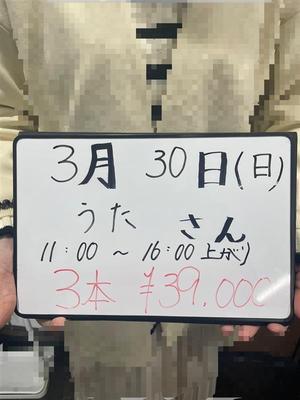 3月 30日(日)
うた さん
11:00 ~ 16:00 上がり
3本 ¥39.000